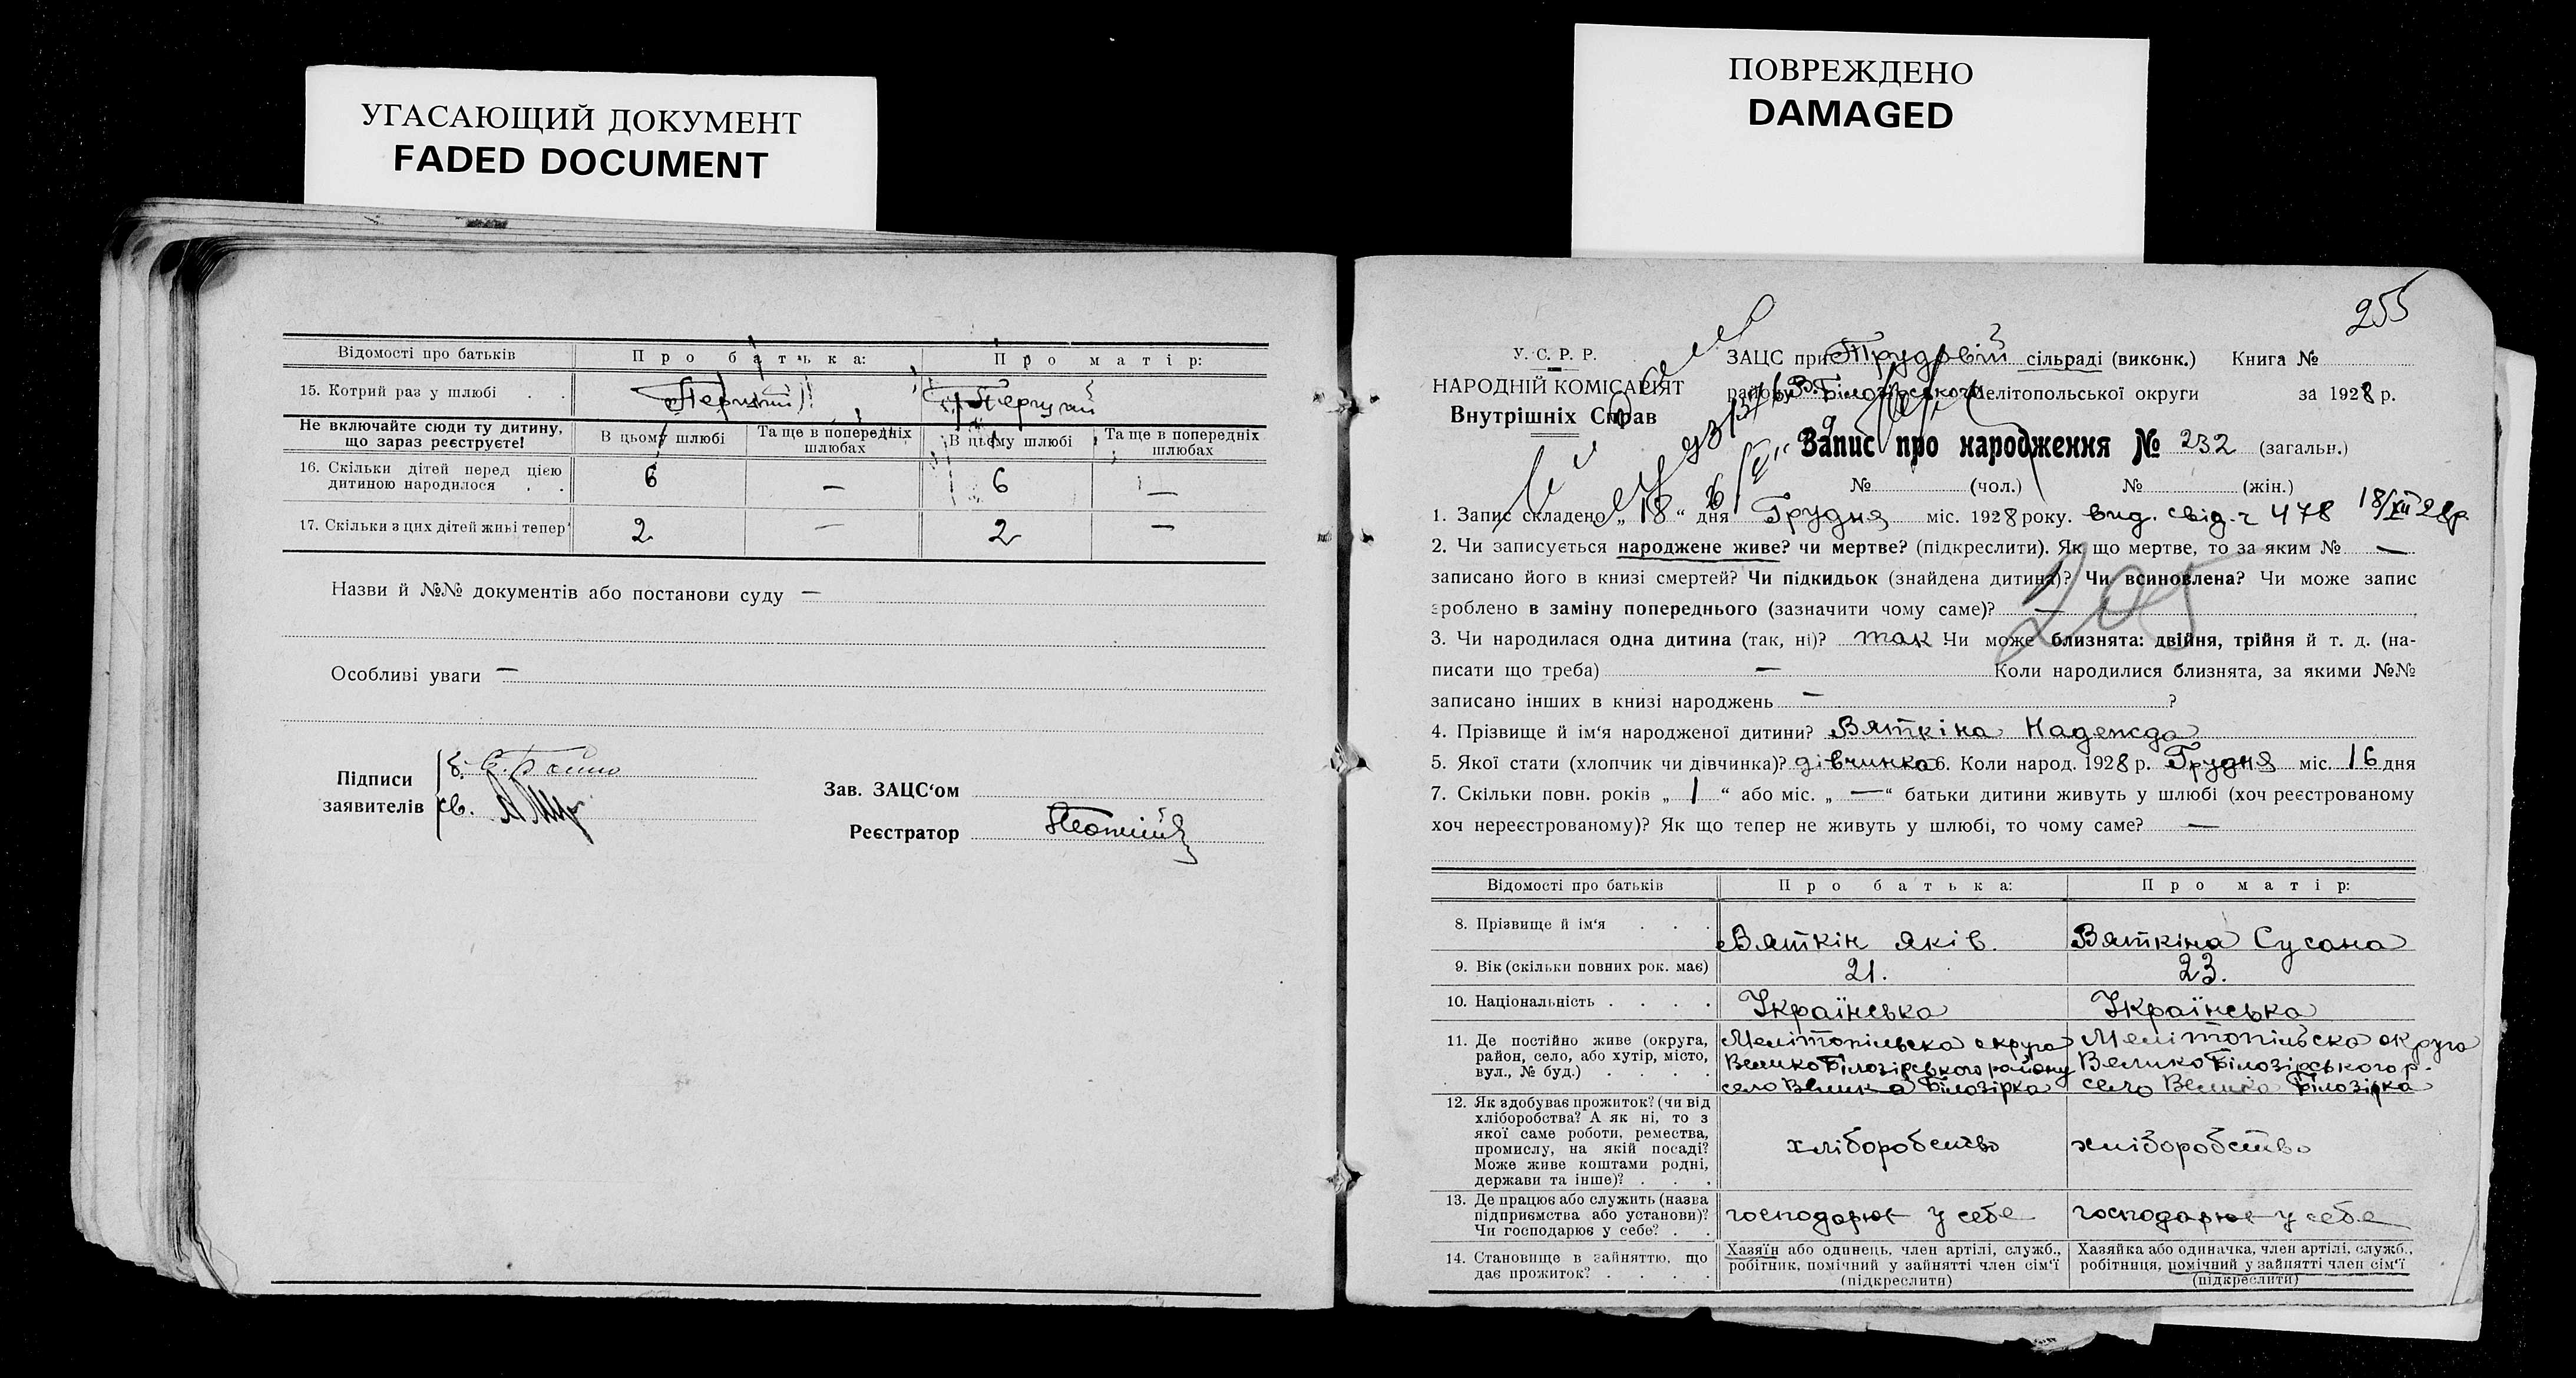 УГАСАЮЩИЙ ДОКУМЕНТ
FADED DOCUMENT
ПОВРЕЖДЕНО
DAMAGED
Відомості про батьків Про батька: Про матір:
15. Котрий раз у шлюбі . . Первий Первий
Не включайте сюди ту дитину, що зараз реєструєте! В цьому шлюбі Та ще в попередніх шлюбах В цьому шлюбі Та ще в попередніх шлюбах
16. Скільки дітей перед цією
дитиною народилося . . 6 — 6 —
17. Скільки з цих дітей живі тепер 2 — 2 —
Назви й №№ документів або постанови суду —
Особливі уваги —
Підписи
заявителів
б.
св.
Зав. ЗАЦС‘ом
Реєстратор
255
У. С. Р. Р.
НАРОДНІЙ КОМІСАРІЯТ
Внутрішніх Справ
ЗАЦС при Трудовій сільраді (виконк.) Книга №
району В. Білозірського Мелітопольської округи за 1928 р.
Запис про народження № 232 (загальн.)
№ (чол.) № (жін.)
1. Запис складено „ 18 “ дня Грудня міс. 1928 року. вид. свід. 478 18/XII 28р
2. Чи записується народжене живе? чи мертве? (підкреслити). Як що мертве, то за яким № —
записано його в книзі смертей? Чи підкидьок (знайдена дитина)? Чи всиновлена? Чи може запис
зроблено в заміну попереднього (зазначити чому саме)? —
205
3. Чи народилася одна дитина (так, ні)? так Чи може близнята: двійня, трійня й т. д. (на-
писати що треба) — Коли народилися близнята, за якими №№
записано інших в книзі народжень — ?
4. Прізвище й ім‘я народженої дитини? Вяткіна Надежда
5. Якої стати (хлопчик чи дівчинка)? дівчинка 6. Коли народ. 1928 р. Грудня міс. 16 дня
7. Скільки повн. років „ 1 “ або міс. „ — “ батьки дитини живуть у шлюбі (хоч реєстрованому
хоч нереєстрованому)? Як що тепер не живуть у шлюбі, то чому саме? —
Відомості про батьків Про батька: Про матір:
8. Прізвище й ім‘я . . . Вяткін Яків. Вяткіна Сусана
9. Вік (скільки повних рок. має) 21. 23.
10. Національність . . . . Українська Українська
11. Де постійно живе (округа,
район, село, або хутір, місто,
вул., № буд.) . . . .
Мелітопільска округа
Велико Білозірського району
село Велика Білозірка
Мелітопільска округа
Велико Білозірського р.
село Велика Білозірка
12. Як здобуває прожиток? (чи від
хліборобства? А як ні, то з
якої саме роботи, ремества,
промислу, на якій посаді?
Може живе коштами родні,
держави та інше)? . . .
хліборобство хліборобство
13. Де працює або служить (назва
підприємства або установи)?
Чи господарює у себе? . .
господарює у себе господарює у себе
14. Становище в зайняттю, що
дає прожиток? . . . .
Хазяїн або одинець, член артілі, служб.,
робітник, помічний у зайнятті член сім‘ї
(підкреслити)
Хазяйка або одиначка, член артілі, служб.,
робітниця, помічний у зайнятті член сім‘ї
(підкреслити)